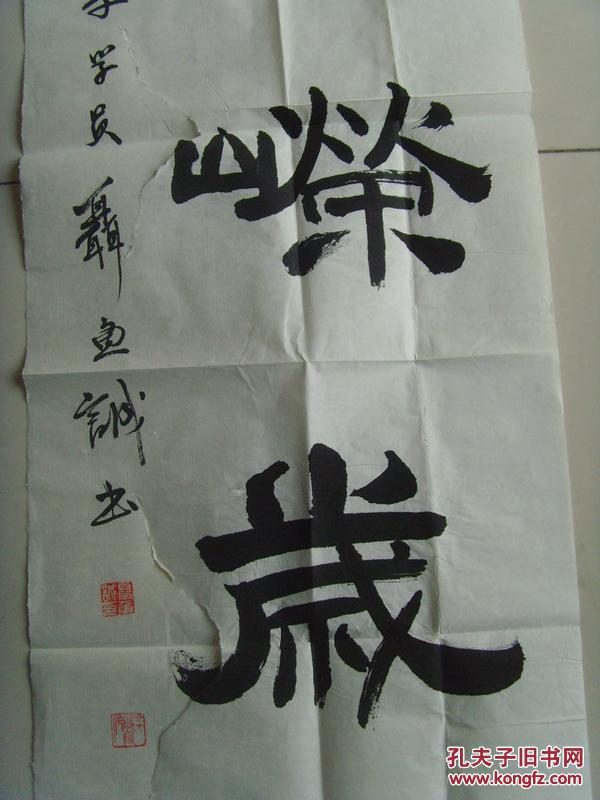 嶸歲
学员聶鱼誠书
孔夫子旧书网
www.kongfz.com